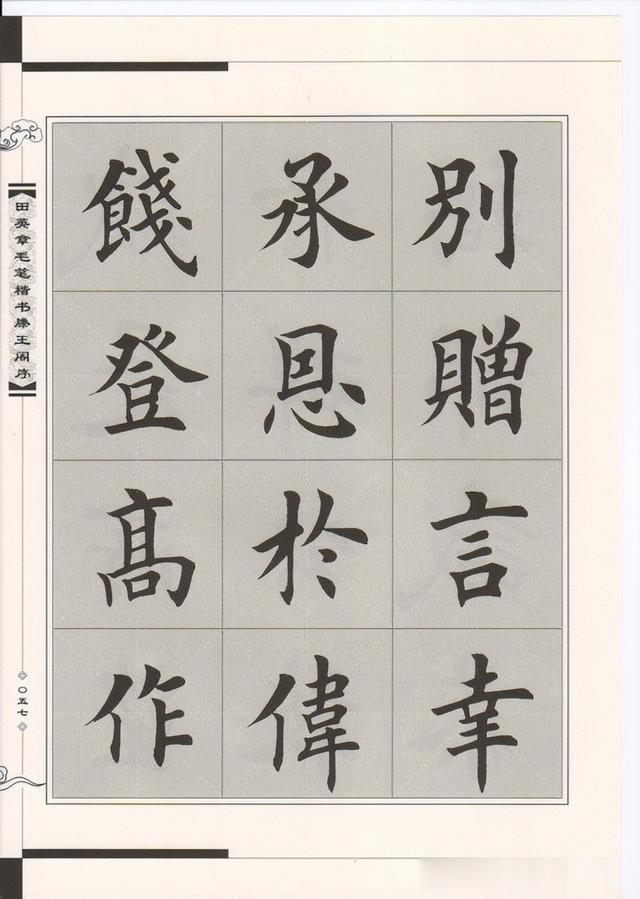 別贈言幸
承恩於偉
餞登高作
田英章毛笔楷书滕王阁序
〇五七